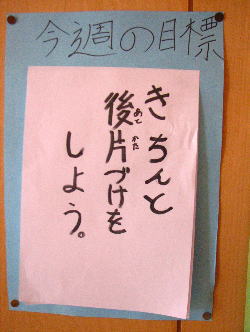 今週の目標
きちんと
後片づけを
あと かた
しよう。